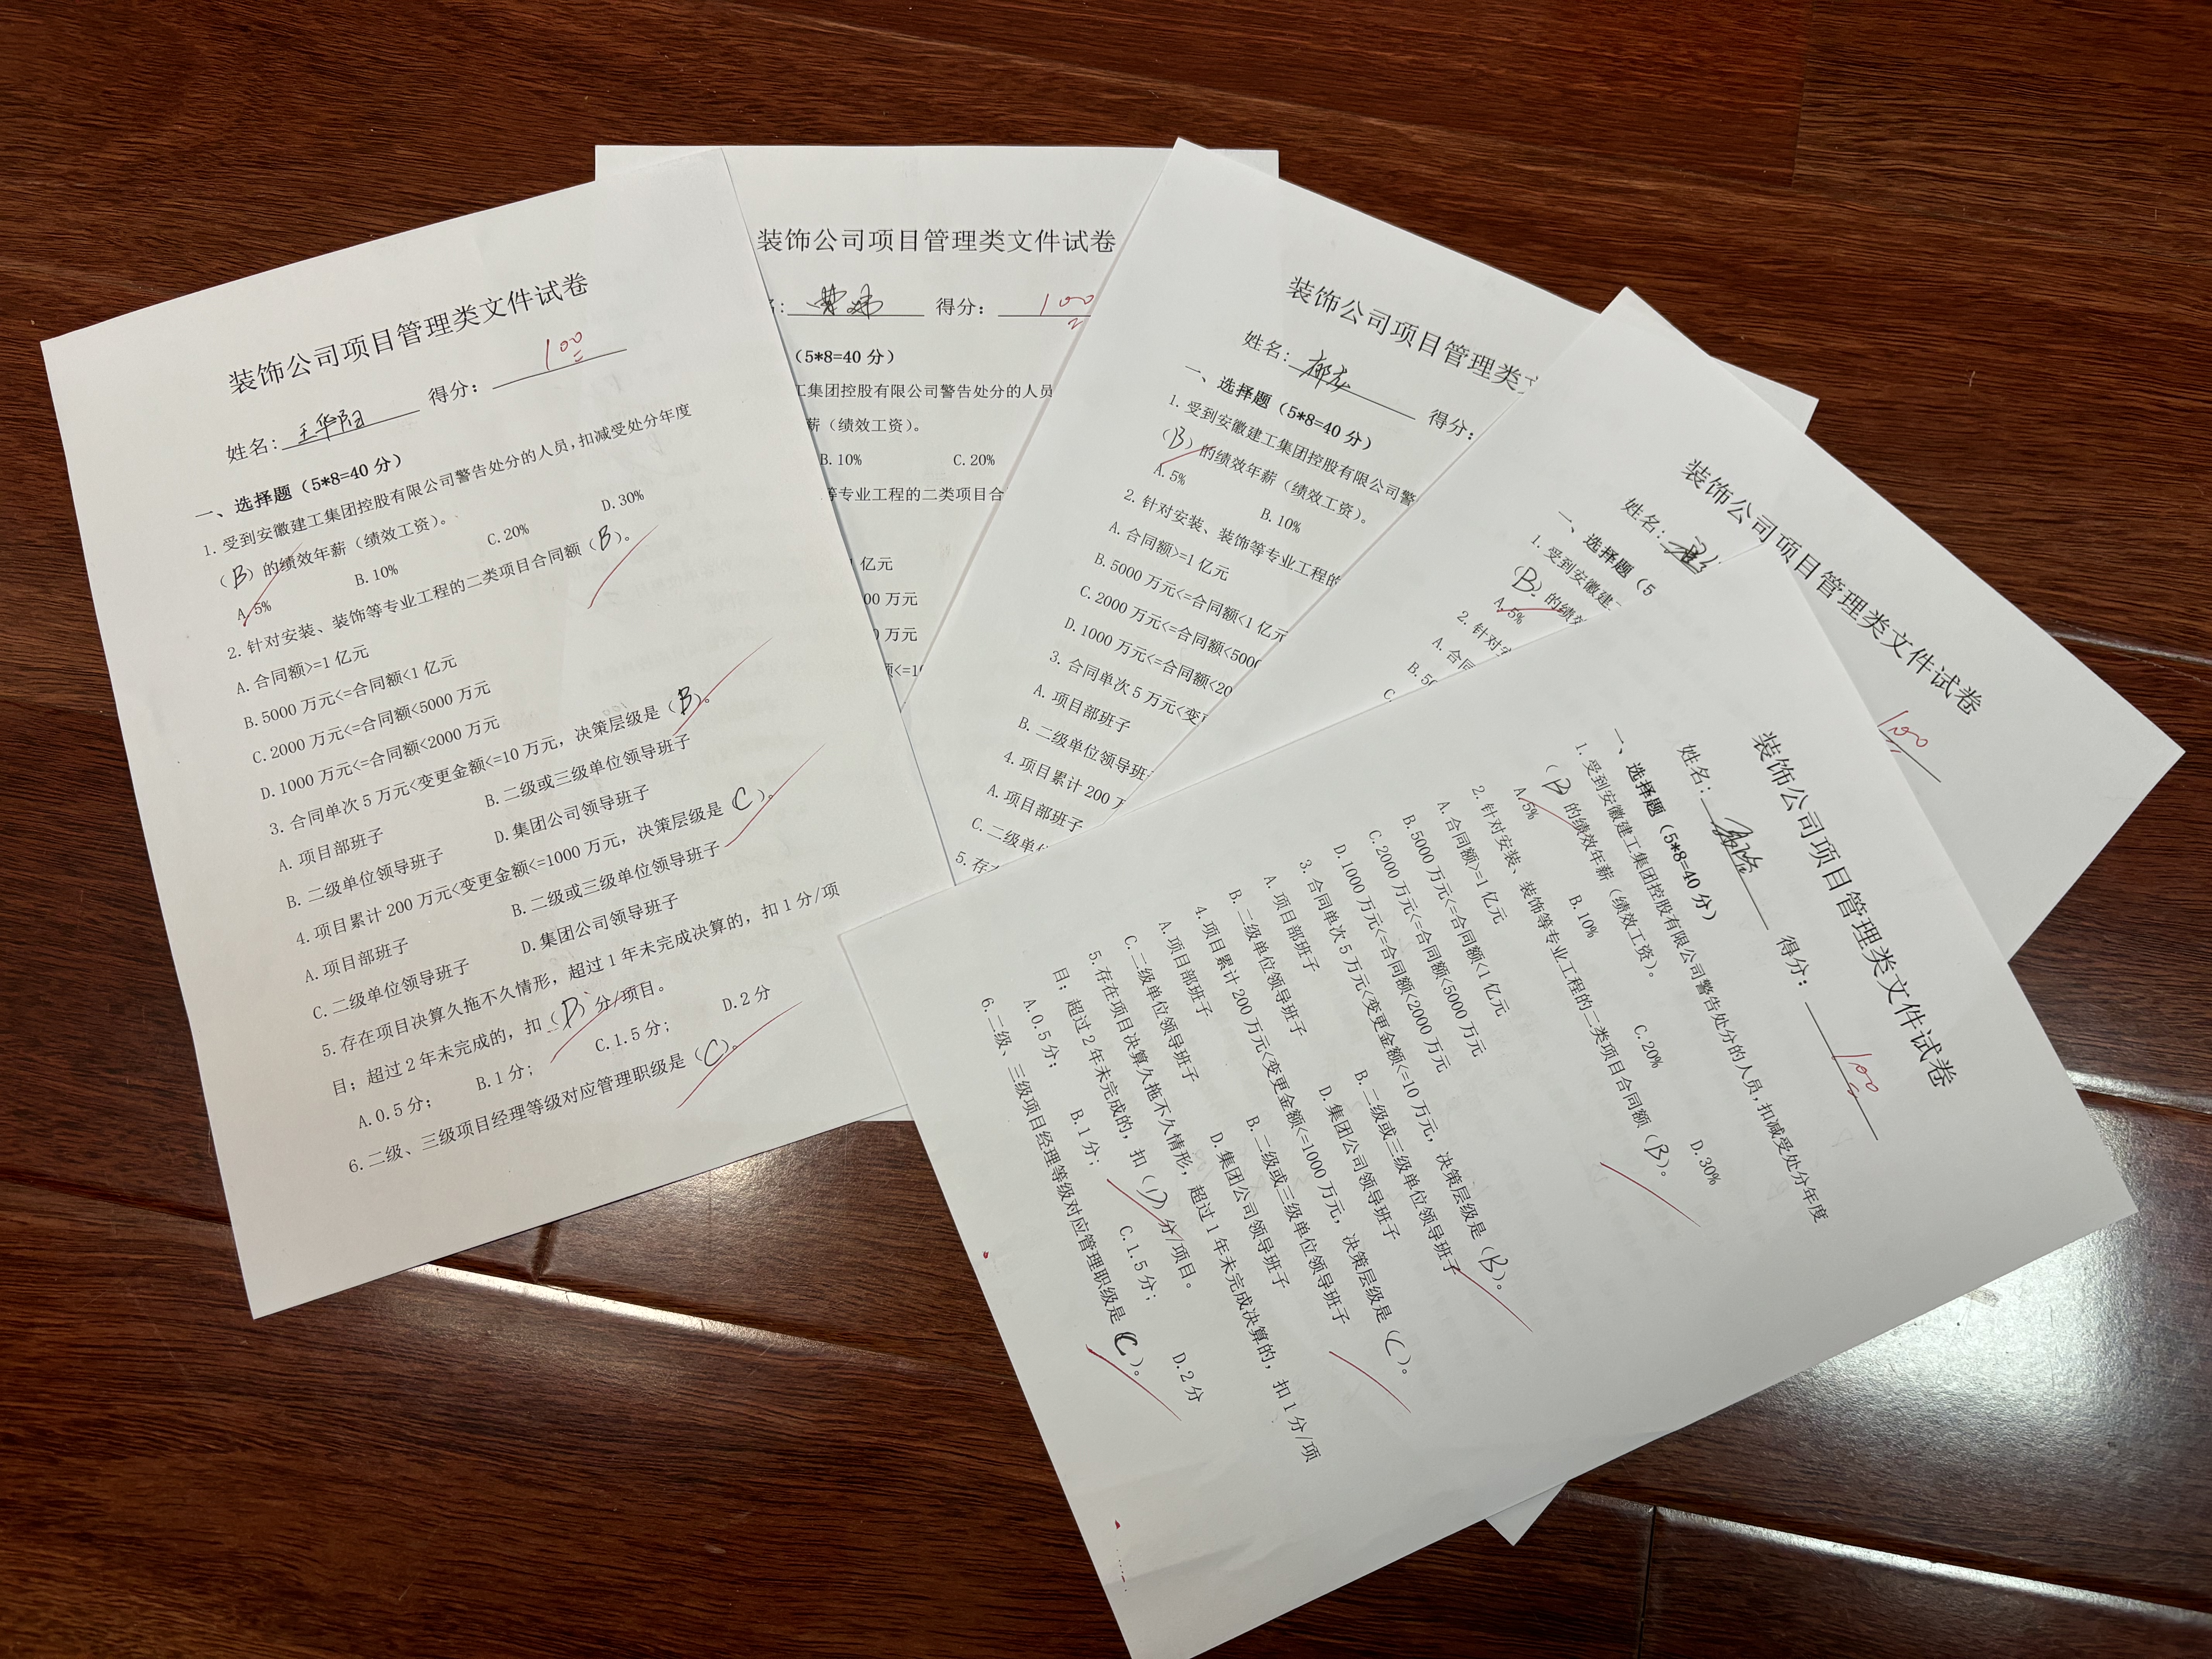 装饰公司项目管理类文件试卷
姓名：王华阳 得分：100
一、选择题（5*8=40 分）
1. 受到安徽建工集团控股有限公司警告处分的人员，扣减受处分年度
（B）的绩效年薪（绩效工资）。
A.5% B.10% C.20% D.30%
2. 针对安装、装饰等专业工程的二类项目合同额（B）。
A. 合同额>=1 亿元
B.5000 万元<=合同额<1 亿元
C.2000 万元<=合同额<5000 万元
D.1000 万元<=合同额<2000 万元
3. 合同单次 5 万元<变更金额<=10 万元，决策层级是（B）。
A. 项目部班子 B. 二级或三级单位领导班子
B. 二级单位领导班子 D. 集团公司领导班子
4. 项目累计 200 万元<变更金额<=1000 万元，决策层级是（C）。
A. 项目部班子 B. 二级或三级单位领导班子
C. 二级单位领导班子 D. 集团公司领导班子
5. 存在项目决算久拖不久情形，超过 1 年未完成决算的，扣 1 分/项
目；超过 2 年未完成的，扣（D）分/项目。
A.0.5 分； B.1 分； C.1.5 分； D.2 分
6. 二级、三级项目经理等级对应管理职级是（C）。
装饰公司项目管理类文件试卷
得分：100
（5*8=40 分）
工集团控股有限公司警告处分的人员
薪（绩效工资）。
B.10% C.20%
等专业工程的二类项目合
亿元
00 万元
万元
装饰公司项目管理类
姓名： 得分：
一、选择题（5*8=40 分）
1. 受到安徽建工集团控股有限公司警
（B）的绩效年薪（绩效工资）。
A.5% B.10%
2. 针对安装、装饰等专业工程的
A. 合同额>=1 亿元
B.5000 万元<=合同额<1 亿元
C.2000 万元<=合同额<5000
D.1000 万元<=合同额<20
3. 合同单次 5 万元<变
A. 项目部班子
B. 二级单位领导班
4. 项目累计 200
A. 项目部班子
C. 二级单
5. 存
装饰公司项目管理类文件试卷
姓名： 100
一、选择题（5
1. 受到安徽建
（B）的绩
A.5%
2. 针对
A. 合同
B.50
C.
装饰公司项目管理类文件试卷
姓名： 得分：100
一、选择题（5*8=40 分）
1. 受到安徽建工集团控股有限公司警告处分的人员，扣减受处分年度
（B）的绩效年薪（绩效工资）。
A.5% B.10% C.20% D.30%
2. 针对安装、装饰等专业工程的二类项目合同额（B）。
A. 合同额>=1 亿元
B.5000 万元<=合同额<1 亿元
C.2000 万元<=合同额<5000 万元
D.1000 万元<=合同额<2000 万元
3. 合同单次 5 万元<变更金额<=10 万元，决策层级是（B）。
A. 项目部班子 B. 二级或三级单位领导班子
B. 二级单位领导班子 D. 集团公司领导班子
4. 项目累计 200 万元<变更金额<=1000 万元，决策层级是（C）。
A. 项目部班子 B. 二级或三级单位领导班子
C. 二级单位领导班子 D. 集团公司领导班子
5. 存在项目决算久拖不久情形，超过 1 年未完成决算的，扣 1 分/项
目；超过 2 年未完成的，扣（D）分/项目。
A.0.5 分； B.1 分； C.1.5 分； D.2 分
6. 二级、三级项目经理等级对应管理职级是（C）。